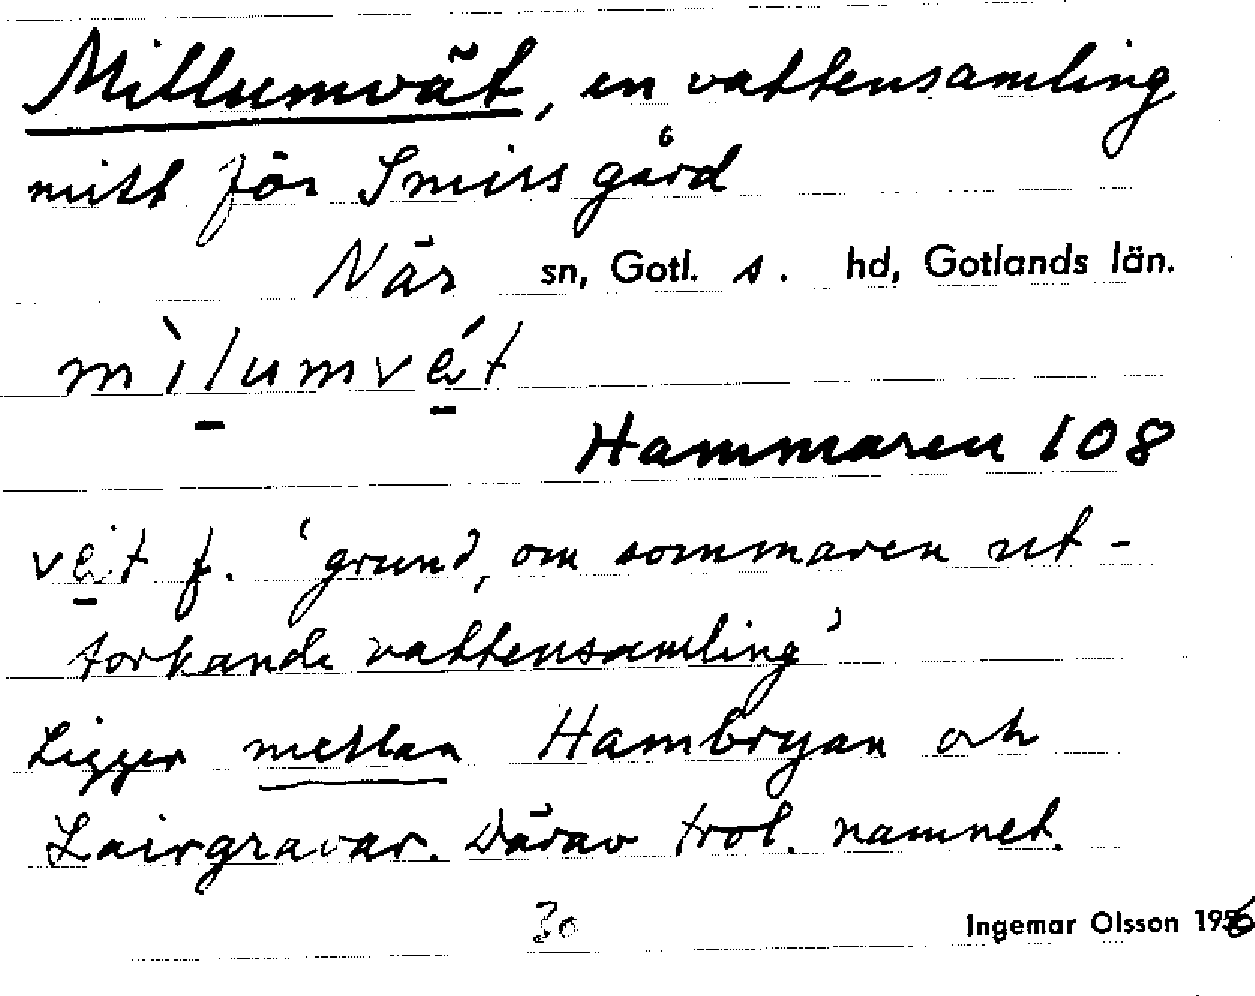 Millumvät, en vattensamling
mitt för Smiss gård
När sn, Gotl. s. hd, Gotlands län.
mìlumvéit
Hammaren 108
veit f. 'grund, om sommaren ut-
torkande vattensamling'
Ligger mellan Hambryan och
Lairgravar. Därav trol. namnet.
30 Ingemar Olsson 1956